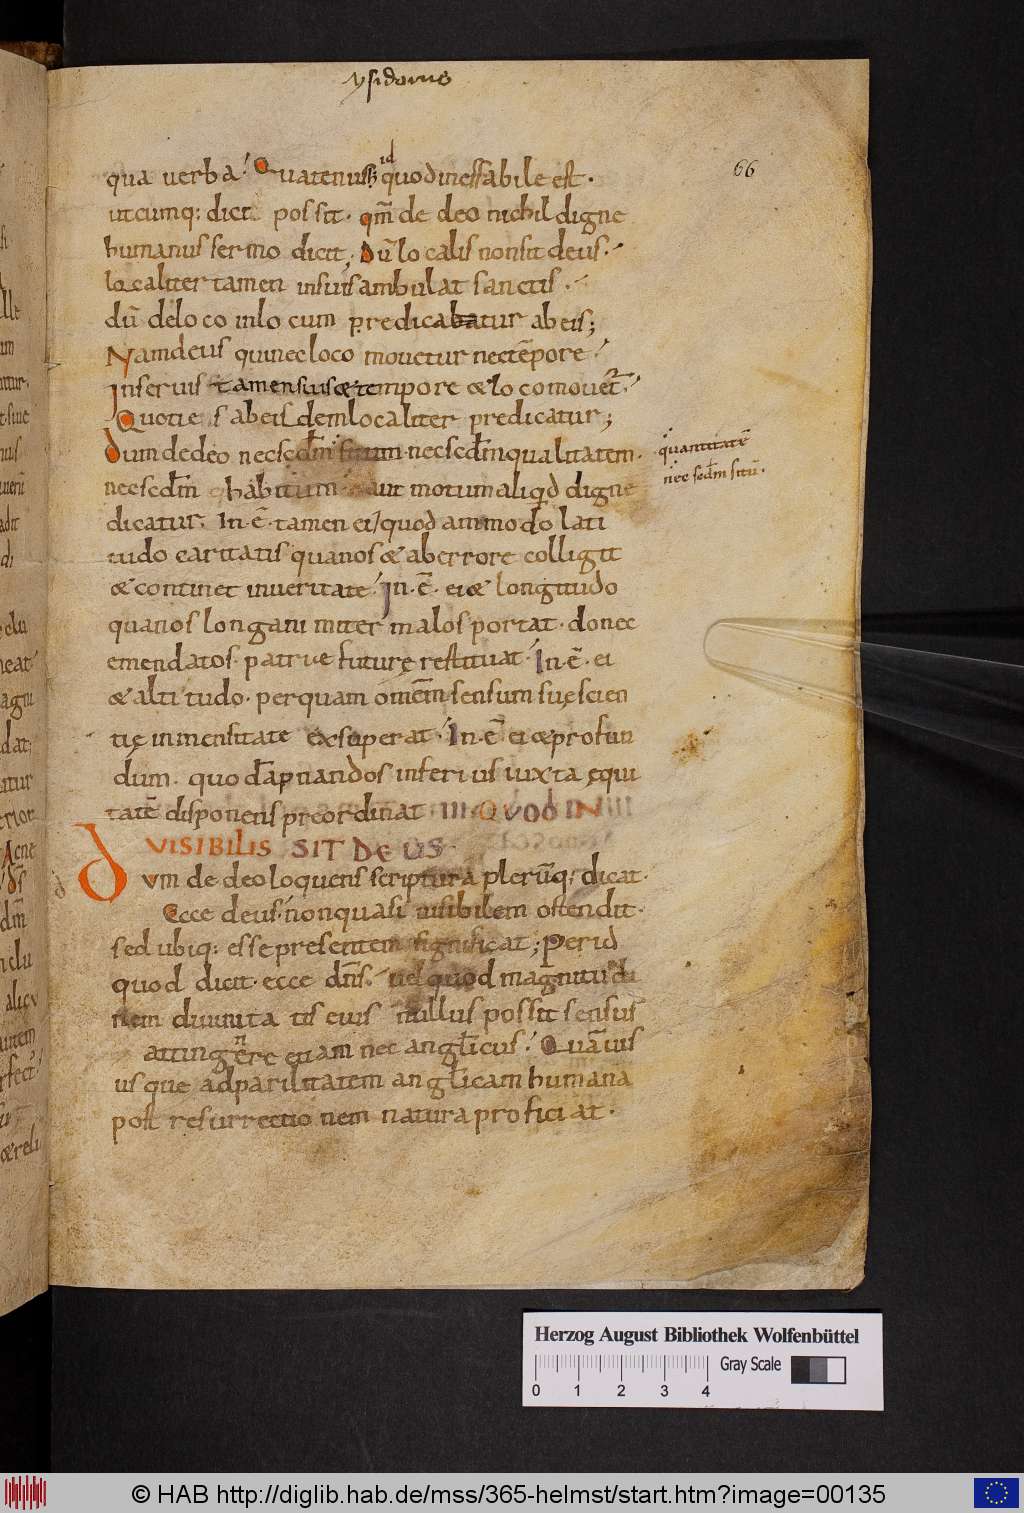 ysidorus
66
qua verba. Quatenus id quod ineffabile est.
utcumq: dici possit. qm̄ de deo nichil digne
humanus sermo dicit. Dū localis non sit deus.
localiter tamen in suis ambulat sanctis.
dū de loco in locum predicabatur ab eis;
Nam deus qui nec loco movetur nec tēpore.
In servis tamen suis & tempore & loco movet̄.
Quoties ab eis dem localiter predicatur;
Dum de deo nec sec̄dm situm. nec sec̄dm qualitatem.
quantitatē
nec secd̄m sitū.
nec secd̄m habitum. aut motum aliqd digne
dicatur. In.ē. tamen ei quodammodo lati
tudo caritatis qua nos & ab errore colligit
& continet in veritate. In.ē. ei & longitudo
qua nos longanimiter malos portat. donec
emendatos. patrie future restituat. In.ē. ei
& altitudo. per quam omēm sensum suę scien
tię inmensitate exsuperat. In.ē ei & profun
dum. quo dāpnandos inferius iuxta ęqui
tatē disponens preordinat. IIII. QUOD IN
VISIBILIS SIT DEUS.
Dum de deo loquens scriptura plerūq; dicat.
Ecce deus. non quasi visibilem ostendit.
sed ubiq: esse presentem significat; Per id
quod dicit. ecce dn̄s. vel quod magnitudi
nem divinitatis eius nullus possit sensus
attingere etiam nec anglicus. Quāvis
usque ad parilitatem anglicam humana
post resurrectionem natura proficiat.
Herzog August Bibliothek Wolfenbüttel
Gray Scale
0 1 2 3 4
© HAB http://diglib.hab.de/mss/365-helmst/start.htm?image=00135